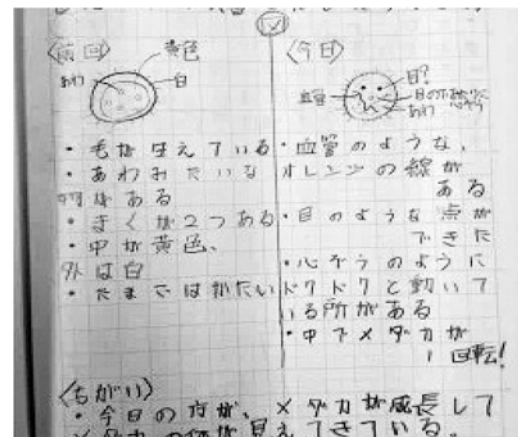 〈前回〉
黄色
あわ
白
・毛が生えている
・あわみたいな
物がある
・まくが2つある
・中が黄色、
外は白
・たまごはかたい
〈今日〉
目?
血管
あわ
・血管のような、
オレンジの線が
ある
・目のような点が
できた
・心ぞうのように
ドクドクと動いて
いる所がある
・中でメダカが
1回転!
〈ちがい〉
・今日の方が、メダカが成長して
見えてきている。